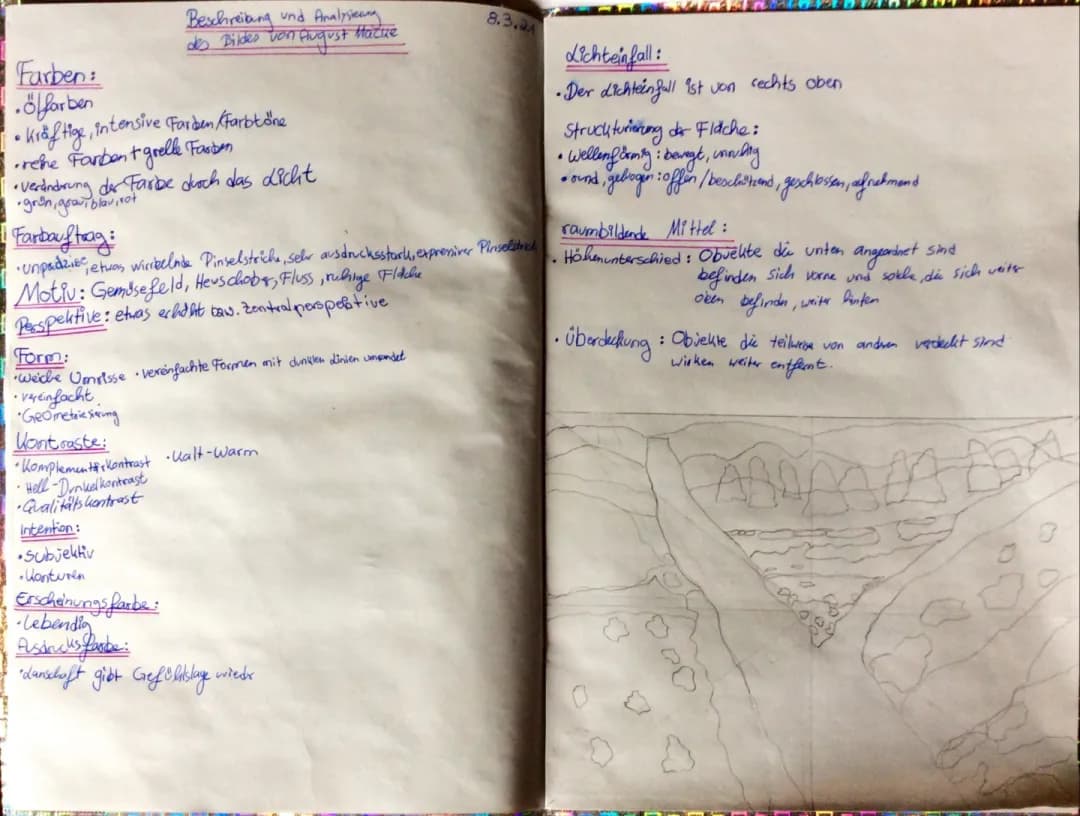 Beschreibung und Analysierung
des Bildes von August Macke
8.3.21
Farben:
• Ölfarben
• Kräftige, intensive Farben/Farbtöne
• reine Farben + grelle Farben
• verändrung der Farbe durch das Licht
• grün, grau, blau, rot
Farbauftrag:
• unpräzise, etwas wirrbelnde Pinselstriche, sehr ausdrucksstark, expresiver Pinselstrich
Motiv: Gemüsefeld, Heuschober, Fluss, ruhige Fläche
Perspektive: etwas erhöht bzw. Zentralperspektive
Form:
• weiche Umrisse • vereinfachte Formen mit dunklen Linien umrandet
• vereinfacht
• Geometriesierung
Kontraste:
• Komplementärkontrast • Kalt-Warm
• Hell-Dunkelkontrast
• Qualitätskontrast
Intention:
• Subjektiv
• Konturen
Erscheinungsfarbe:
• Lebendig
Ausdrucksfarbe:
• Lanschaft gibt Gefühlslage wieder
Lichteinfall:
• Der Lichteinfall ist von rechts oben
Struckturierung der Fläche:
• Wellenförmig: bewegt, unruhig
• rund, gebogen: offen/beschützend, geschlossen, aufnehmend
raumbildende Mittel:
• Höhenunterschied: Objekte die unten angeordnet sind
befinden sich vorne und solche, die sich weiter
oben befinden, weiter hinten
• Überdeckung: Objekte die teilweise von andren verdeckt sind
wirken weiter entfernt.